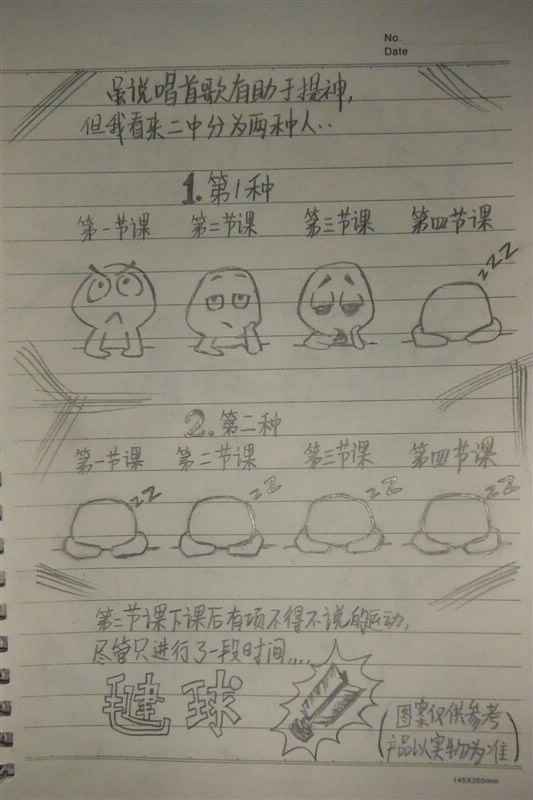 No.
Date
虽说唱首歌有助于提神,
但我看来二中分为两种人..
1.第1种
第一节课 第二节课 第三节课 第四节课
zZZ
2.第二种
第一节课 第二节课 第三节课 第四节课
zZ zZ zZ zZ
第二节课下课后有项不得不说的运动,
尽管只进行了一段时间....
毽球
(图案仅供参考
产品以实物为准)
145X205mm